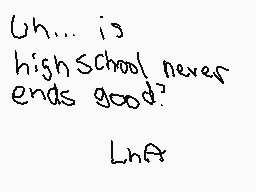 Uh... is
high school never
ends good?
LnA